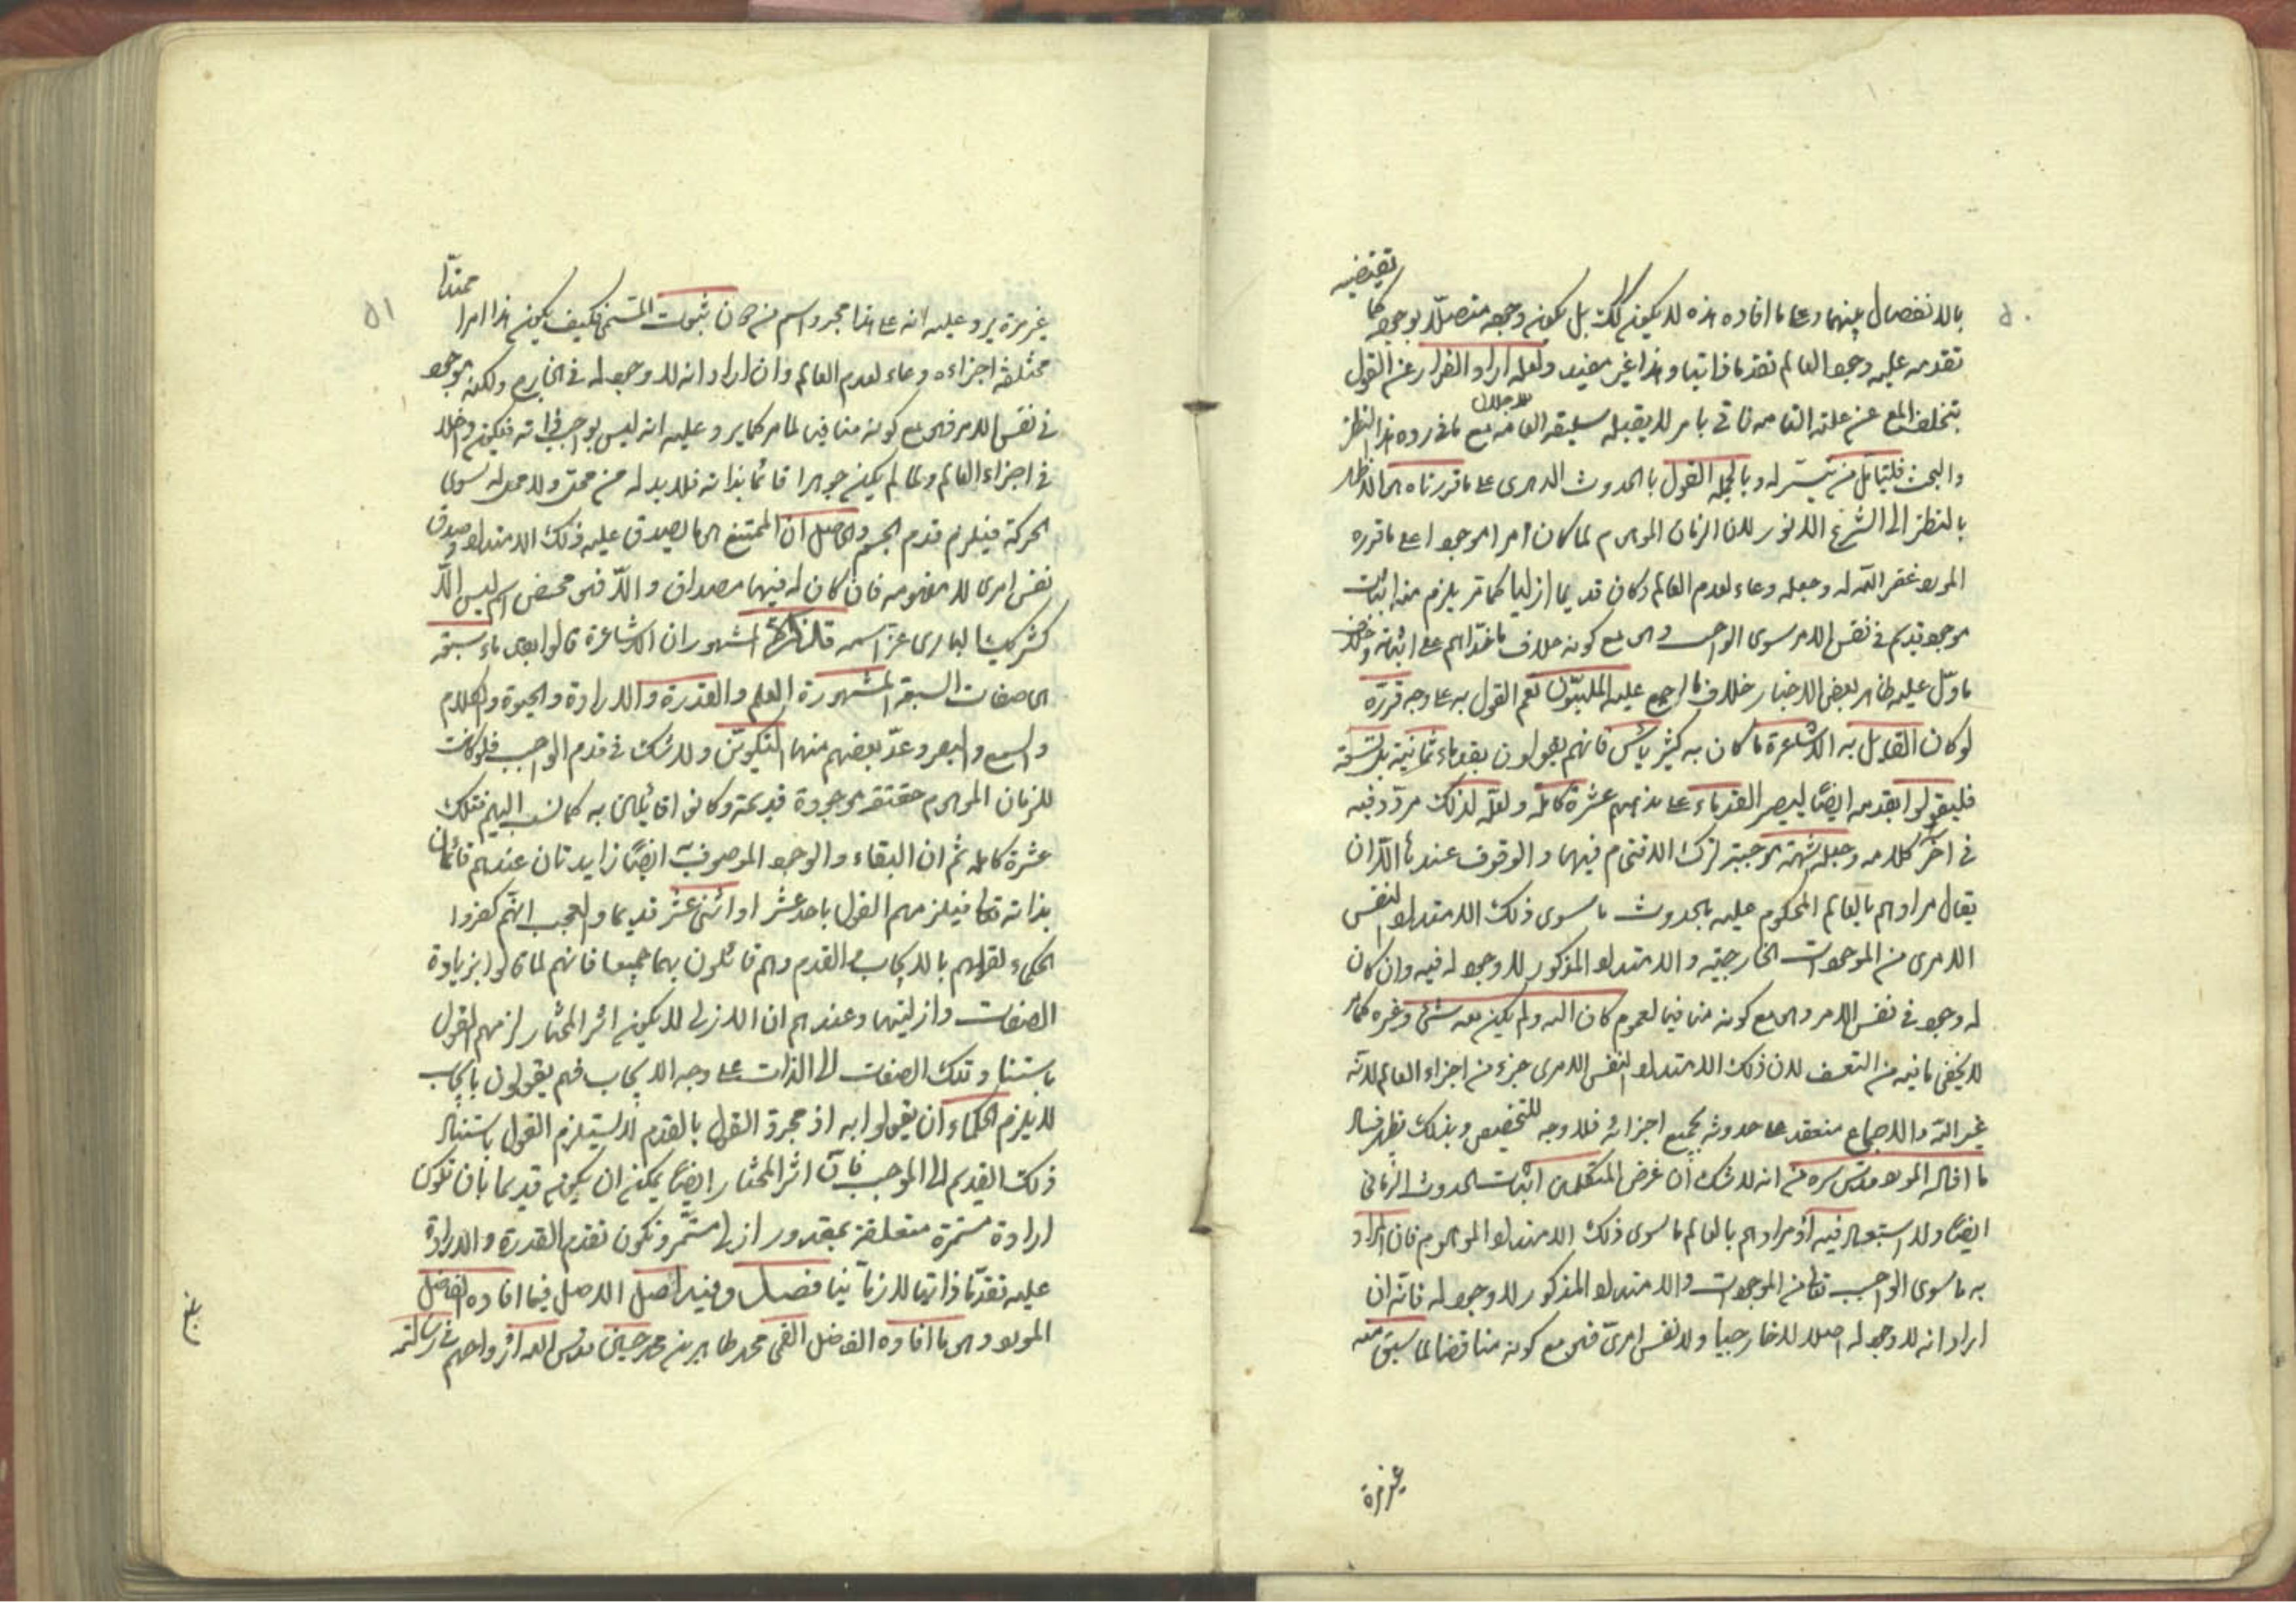 بالانفصال بينهما وعلى ما افاده هذه لا يكون كك بل يكون وجوده متصلا بوجوده كما تقتضيه
تقدمه عليه وجود العالم تقدما ذاتيا وهذا غير مفيد ولعله اراد الفرار عن القول
بتخلف المع عن علته التامة فاتى بامر لا يقبله سليقة العامة مع ما فى رده هذا النظر
والبحث فليتأمل من تيسر له وبالجملة القول بالحدوث الدهرى على ما قررناه
بالنظر الى الشرع الانور لان الزمان الموهوم لما كان امرا موجودا على ما قرره
المورد غفر الله له وجعله وعاء لعدم العالم وكان قديما ازليا كما مر يلزم منه اثبات
موجود قديم فى نفس الامر سوى الواجب وهو مع كونه خلاف
ما دل عليه ظاهر بعض الاخبار خلاف ما اجمع عليه المليون نعم القول به على وجه قرره
لو كان القائل به الاشاعرة ما كان به كثير بأس فانهم يقولون بقدماء ثمانية بل تسعة
فليقولوا بقدمه ايضا ليصير القدماء على مذهبهم عشرة كاملة ولعله لذلك مردد فيه
فى آخر كلامه وجعله شبهة موجبة لترك الاقتحام فيها والوقوف عندها الا ان
يقال مرادهم بالعالم المحكوم عليه بالحدوث ما سوى ذلك الامتداد النفس
الامرى من الموجودات الخارجية والامتداد المذكور لا وجود له فيه وان كان
له وجود فى نفس الامر وهو مع كونه منافيا لعموم كان الله ولم يكن معه شئ وغيره كما مر
لا يخفى ما فيه من التعسف لان ذلك الامتداد النفس الامرى جزء من اجزاء العالم لانه
غير الله والاجماع منعقد على حدوثه بجميع اجزائه فلا وجه للتخصيص وبذلك يظهر فساد
ما افاد المورد قدس سره من انه لا شك ان غرض المتكلمين اثبات الحدوث الزمانى
ايضا ولا استبعاد فيه اذ مرادهم بالعالم ما سوى ذلك الامتداد الموهوم فان المراد
به ما سوى الواجب تعالى من الموجودات والامتداد المذكور لا وجود له فانه ان
اراد انه لا وجود له اصلا لا خارجيا ولا نفس امرى فهو مع كونه مناقضا لما سبق منه
غير مرة
غير مرة يرد عليه انه على هذا مجرد اسم من دون ثبوت المسمى فكيف يكون هذا امرا ممتدا
مختلفة اجزاءه وعاء لعدم العالم وان اراد انه لا وجود له فى الخارج ولكنه موجود
فى نفس الامر فهو مع كونه منافيا لما مر كما يرد عليه انه ليس بواجب فى ذاته فيكون داخلا
فى اجزاء العالم ولما لم يكن جوهرا قائما بذاته فلا بد له من محل ولا محل له سوى
الحركة فيلزم قدم الجسم والحاصل ان الممتنع هو ما يصدق عليه ذلك الامتداد صدق
نفس امرى لا مفهومه فان كان له فيها مصداق والا فهو محض اسم ليس الا
كشريك البارى عز اسمه المشهور ان الاشاعرة قالوا بقدماء سبعة
هى صفات السبعة المشهورة العلم والقدرة والارادة والحيوة والكلام
والسمع والبصر وعد بعضهم منها التكوين ولا شك فى قدم الواجب فلو كانت
للزمان الموهوم حقيقة موجودة قديمة وكانوا قائلين به كما نسب اليهم فتلك
عشرة كاملة ثم ان البقاء والوجود الموصوف ايضا زايدتان عندهم قائمتان
بذاته تعالى فيلزمهم القول باحد عشر او اثنى عشر قديما والعجب انهم كفروا
الحكماء لقولهم بالايجاب والقدم وهم قائلون بهما جميعا فانهم لما قالوا بزيادة
الصفات وازليتها وعندهم ان الازلى لا يكون اثر المختار لزمهم القول
باستناد تلك الصفات الى الذات على وجه الايجاب فهم يقولون بايجاب
لا يلزم الحكماء ان يقولوا به اذ مجرد القول بالقدم لا يستلزم القول باستناد
ذلك القديم الى الموجب فان اثر المختار ايضا يمكن ان يكون قديما بان تكون
ارادة مستمرة متعلقة بمقدور ازلى مستمر وتكون تقدم القدرة والارادة
عليه تقدما ذاتيا لا زمانيا فصل وفيه اصل الاصل فيما افاده الفاضل
المورد وهو ما افاده الفاضل القمى محمد طاهر بن محمد حسين قدس الله ارواحهم فى رسالته